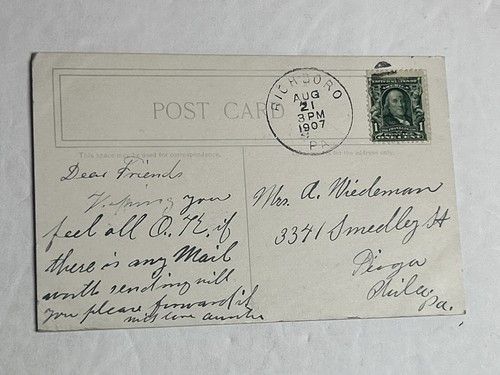 POST CARD
RICHBORO
AUG
21
3PM
1907
PA.
1
1
This space may be used for correspondence.
for the address only.
Dear Friends
Hoping you
feel all O.K. if
there is any Mail
worth sending will
you please forward it
with love
Mrs. A. Wiedeman
3341 Smedley St
Tioga
Phila
Pa.